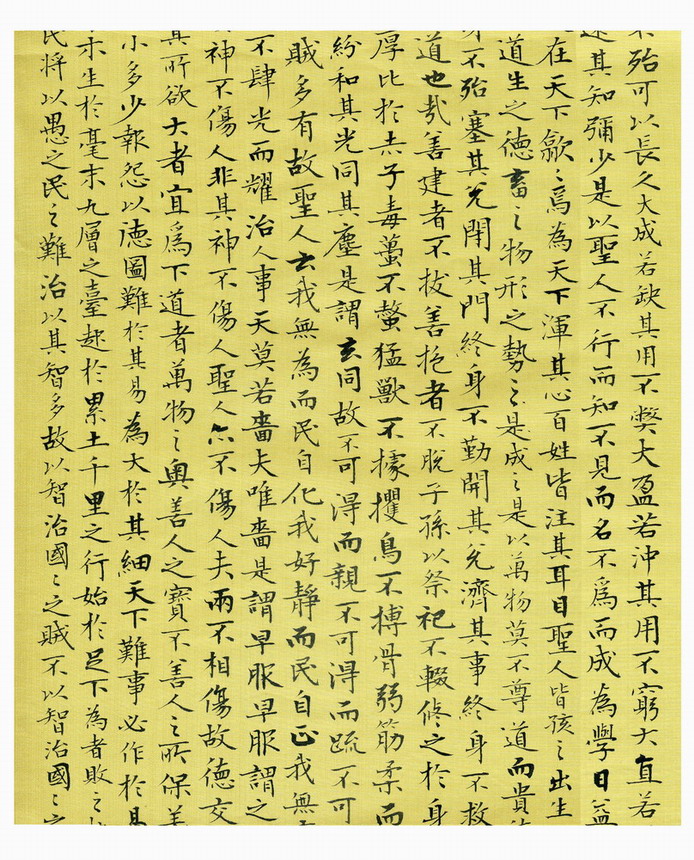 不殆可以長久大成若缺其用不弊大盈若沖其用不窮大直若
遠其知彌少是以聖人不行而知不見而名不爲而成為學日益
在天下歙〻爲為天下渾其心百姓皆注其耳目聖人皆孩之出生
道生之德畜之物形之勢之是成之是以萬物莫不尊道而貴
不殆塞其兌閉其門終身不勤開其兌濟其事終身不救
道也哉善建者不拔善抱者不脫子孫以祭祀不輟修之於身
厚比於赤子毒蠆不螫猛獸不據攫鳥不搏骨弱筋柔而
紛和其光同其塵是謂玄同故不可得而親不可得而疏不可
賊多有故聖人云我無為而民自化我好靜而民自正我無
不肆光而耀治人事天莫若嗇夫唯嗇是謂早服早服謂之
神不傷人非其神不傷人聖人亦不傷人夫兩不相傷故德交
其所欲大者宜爲下道者萬物之奧善人之寶不善人之所保美
小多少報怨以德圖難於其易為大於其細天下難事必作於易
末生於毫末九層之臺起於累土千里之行始於足下為者敗之
民將以愚之民之難治以其智多故以智治國〻之賊不以智治國〻之